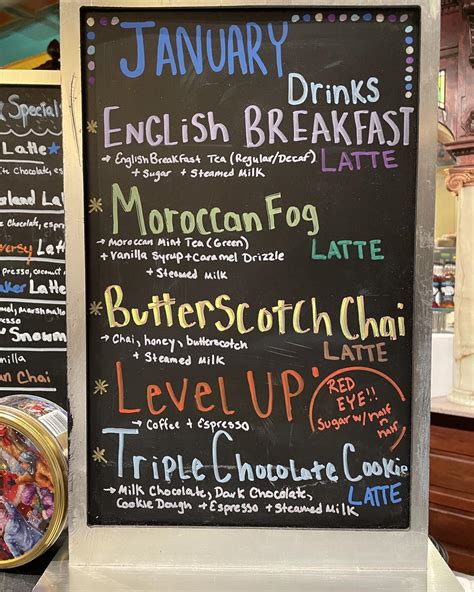 JANUARY
Drinks
ENGLISH BREAKFAST
→ English Breakfast Tea (Regular/Decaf)
LATTE
+ Sugar + Steamed Milk
Moroccan Fog
→ Moroccan Mint Tea (Green)
LATTE
+ Vanilla Syrup + Caramel Drizzle
+ Steamed Milk
ButterScotch Chai
→ Chai, honey, butterscotch
LATTE
+ Steamed Milk
LEVEL UP'
RED
EYE!!
Sugar w/ half
n
half
→ Coffee + Espresso
Triple Chocolate Cookie
LATTE
→ Milk Chocolate, Dark Chocolate,
Cookie Dough + Espresso + Steamed Milk
Special
Latte
Chocolate, es
land La
Chocolate, espres
ersy Lat
presso, coconut
aker Latte
, Marshmal
espresso
Snowm
nilla
an Chai